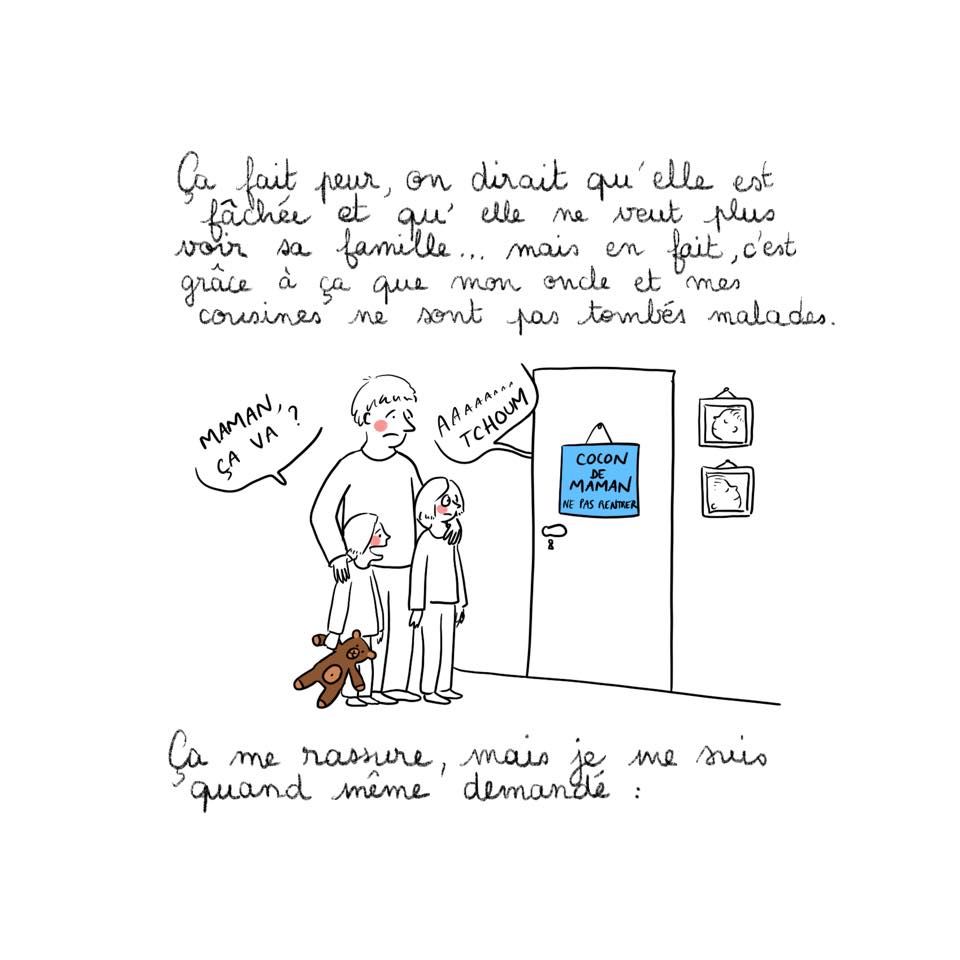 Ça fait peur, on dirait qu'elle est
fâchée et qu'elle ne veut plus
voir sa famille... mais en fait, c'est
grâce à ça que mon oncle et mes
cousines ne sont pas tombés malades.
MAMAN,
ÇA VA ?
AAAAAAAAA
TCHOUM
COCON
DE
MAMAN
NE PAS RENTRER
Ça me rassure, mais je me suis
quand même demandé :